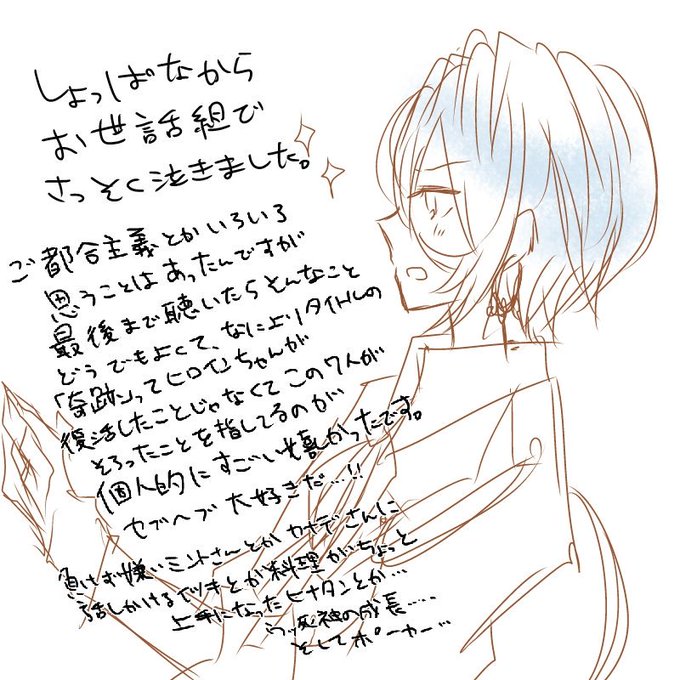 しょっぱなから
お世話組で
さっそく泣きました。
ご都合主義とかいろいろ
思うことはあったんですが
最後まで聴いたらそんなこと
どうでもよくて、なによりタイトルの
「奇跡」ってヒロインちゃんが
復活したことじゃなくてこの7人が
そろったことを指してるのが
個人的にすごい嬉しかったです。
セブヘブ大好きだ…!!
負けず嫌いミントさんとかカナデさんに
話しかけるイツキとか料理がちょっと
上手になったヒナタンとか…
死神の成長……
そしてポーカー…